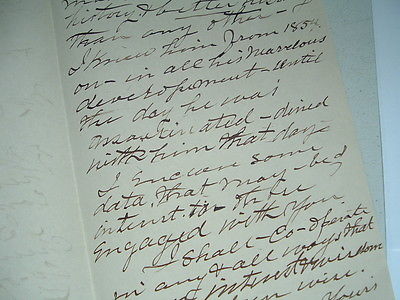 history & better
than any other
I knew him from 1854.
on - in all his marvelous
developement - until
the day he was
assassinated - dined
with him that day
I enclose some
data, that may - be of
interest to those
engaged with you.
I Shall - Co-operate
in any & all ways that
interest & wisdom
Yours